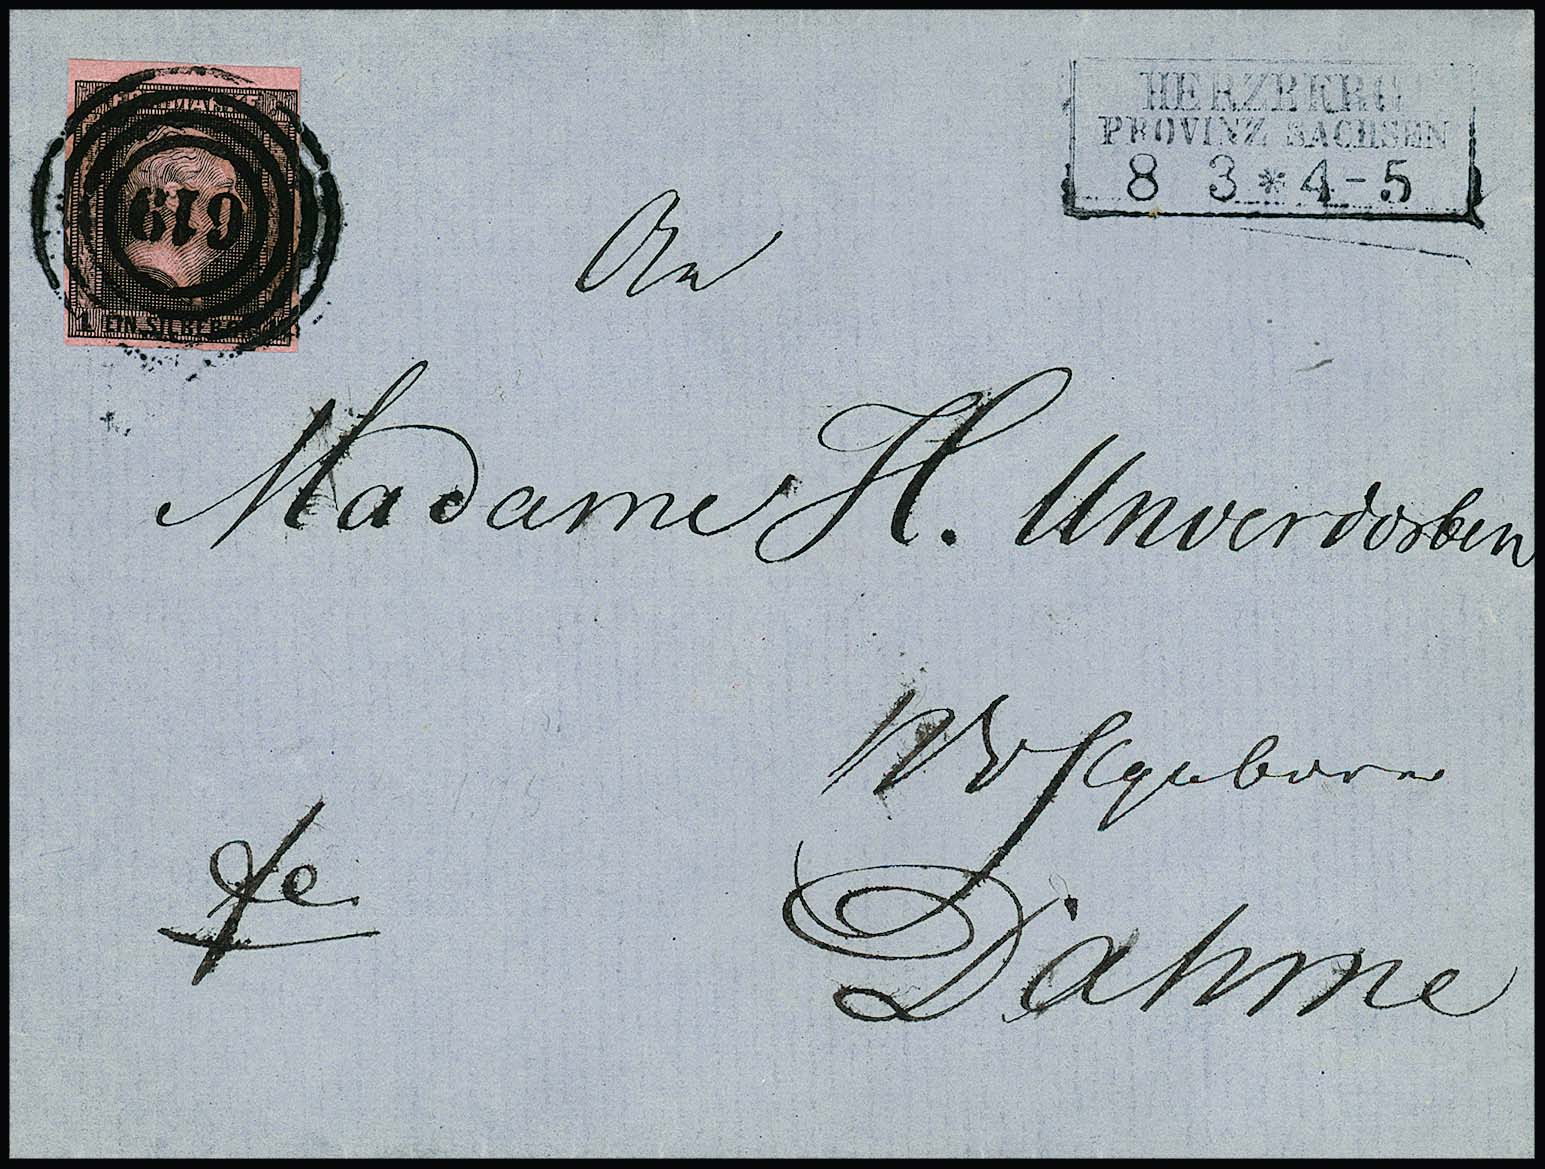 FREIMARKE
619
1 EIN.SILBERGR.
HERZBERG
PROVINZ SACHSEN
8 3 * 4-5
An
Madame H. Unverdorben
Wohlgeboren
fr.
Dahme